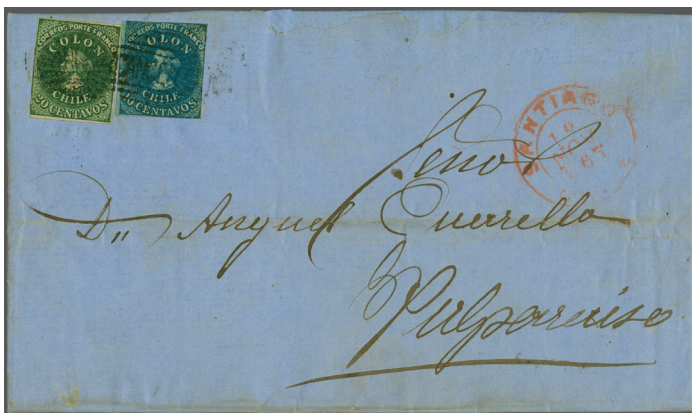 CORREOS PORTE FRANCO
COLON
CHILE
20 CENTAVOS
CORREOS PORTE FRANCO
COLON
CHILE
10 CENTAVOS
SANTIAGO
10
NOV
67
Señor
Dn Anguel Cuarella
Valparaiso